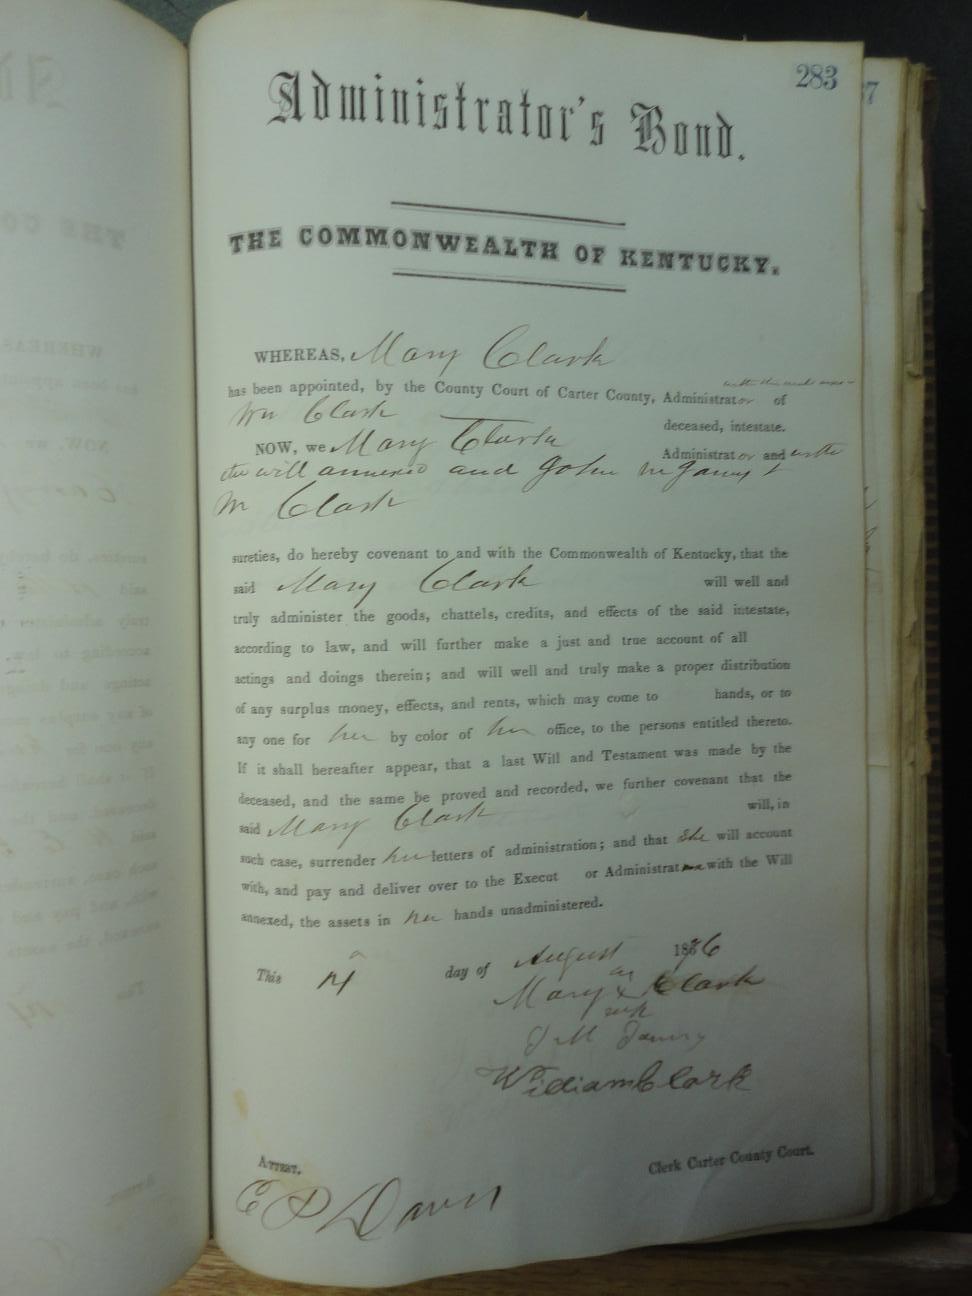 283
Administrator's Bond.
THE COMMONWEALTH OF KENTUCKY.
WHEREAS, Mary Clark
has been appointed, by the County Court of Carter County, Administrator with the will of
Wm Clark deceased, intestate.
NOW, we Mary Clark Administrator and with
the will annexed and John M
Wm Clark
sureties, do hereby covenant to and with the Commonwealth of Kentucky, that the
said Mary Clark will well and
truly administer the goods, chattels, credits, and effects of the said intestate,
according to law, and will further make a just and true account of all
actings and doings therein; and will well and truly make a proper distribution
of any surplus money, effects, and rents, which may come to hands, or to
any one for her by color of her office, to the persons entitled thereto.
If it shall hereafter appear, that a last Will and Testament was made by the
deceased, and the same be proved and recorded, we further covenant that the
said Mary Clark will, in
such case, surrender her letters of administration; and that she will account
with, and pay and deliver over to the Execut or Administrat with the Will
annexed, the assets in her hands unadministered.
This 14 day of August 1876
Mary x Clark
J M
William Clark
ATTEST.
Clerk Carter County Court.
C P Davis